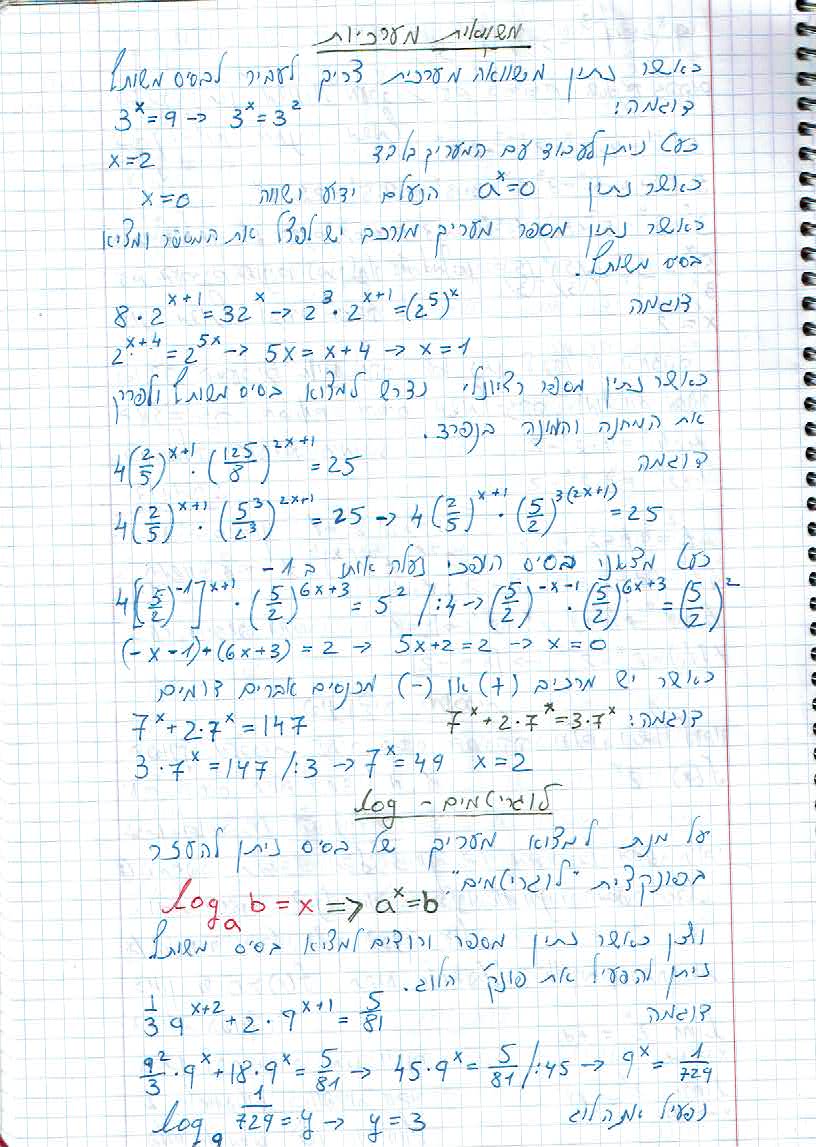 משוואות מערכיות
כאשר נתין משוואה מערכית צריך לעביר לבסיס משותף
דוגמה:
3^x = 9 → 3^x = 3^2
כעת ניתן לעבוד עם המעריך בלבד
x = 2
כאשר נתין a^x = 0 הנעלם ידוע ושווה x = 0
כאשר נתין מספר מעריך מורכב יש לפצל את המספר ומציא
בסיס משותף.
דוגמה
8 · 2^(x+1) = 32^x → 2^3 · 2^(x+1) = (2^5)^x
2^(x+4) = 2^(5x) → 5x = x + 4 → x = 1
כאשר נתין מספר רציונלי נדרש למצוא בסיס משותף ולפרק
את המחנה והמונה בנפרד.
דוגמה
4(2/5)^(x+1) · (125/8)^(2x+1) = 25
4(2/5)^(x+1) · (5^3/2^3)^(2x+1) = 25 → 4(2/5)^(x+1) · (5/2)^(3(2x+1)) = 25
כעת מצאנו בסיס הופכי נעלה אותו ב 1-
4[(5/2)^-1]^(x+1) · (5/2)^(6x+3) = 5^2 /:4 → (5/2)^(-x-1) · (5/2)^(6x+3) = (5/2)^2
(-x-1)+(6x+3) = 2 → 5x+2 = 2 → x = 0
כאשר יש מרכיב (+) או (-) מכנסים אברים דומים
דוגמה: 7^x + 2·7^x = 3·7^x
7^x + 2·7^x = 147
3·7^x = 147 /:3 → 7^x = 49 x = 2
לוגריטמים - log
על מנת למצוא מעריך של בסיס ניתן להעזר
בפונקצית "לוגריטמים".
log_a b = x => a^x = b
ולכן כאשר נתין מספר ורוצים למציא בסיס משותף
ניתן להפעיל את פונק' הלוג.
דוגמה
1/3 9^(x+2) + 2 · 9^(x+1) = 5/81
9^2/3 · 9^x + 18 · 9^x = 5/81 → 45 · 9^x = 5/81 /:45 → 9^x = 1/729
נפעיל את הלוג
log_9 1/729 = y → y = 3